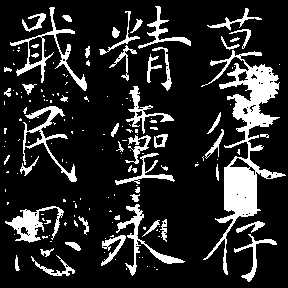 墓徒存
精靈永
戢民思